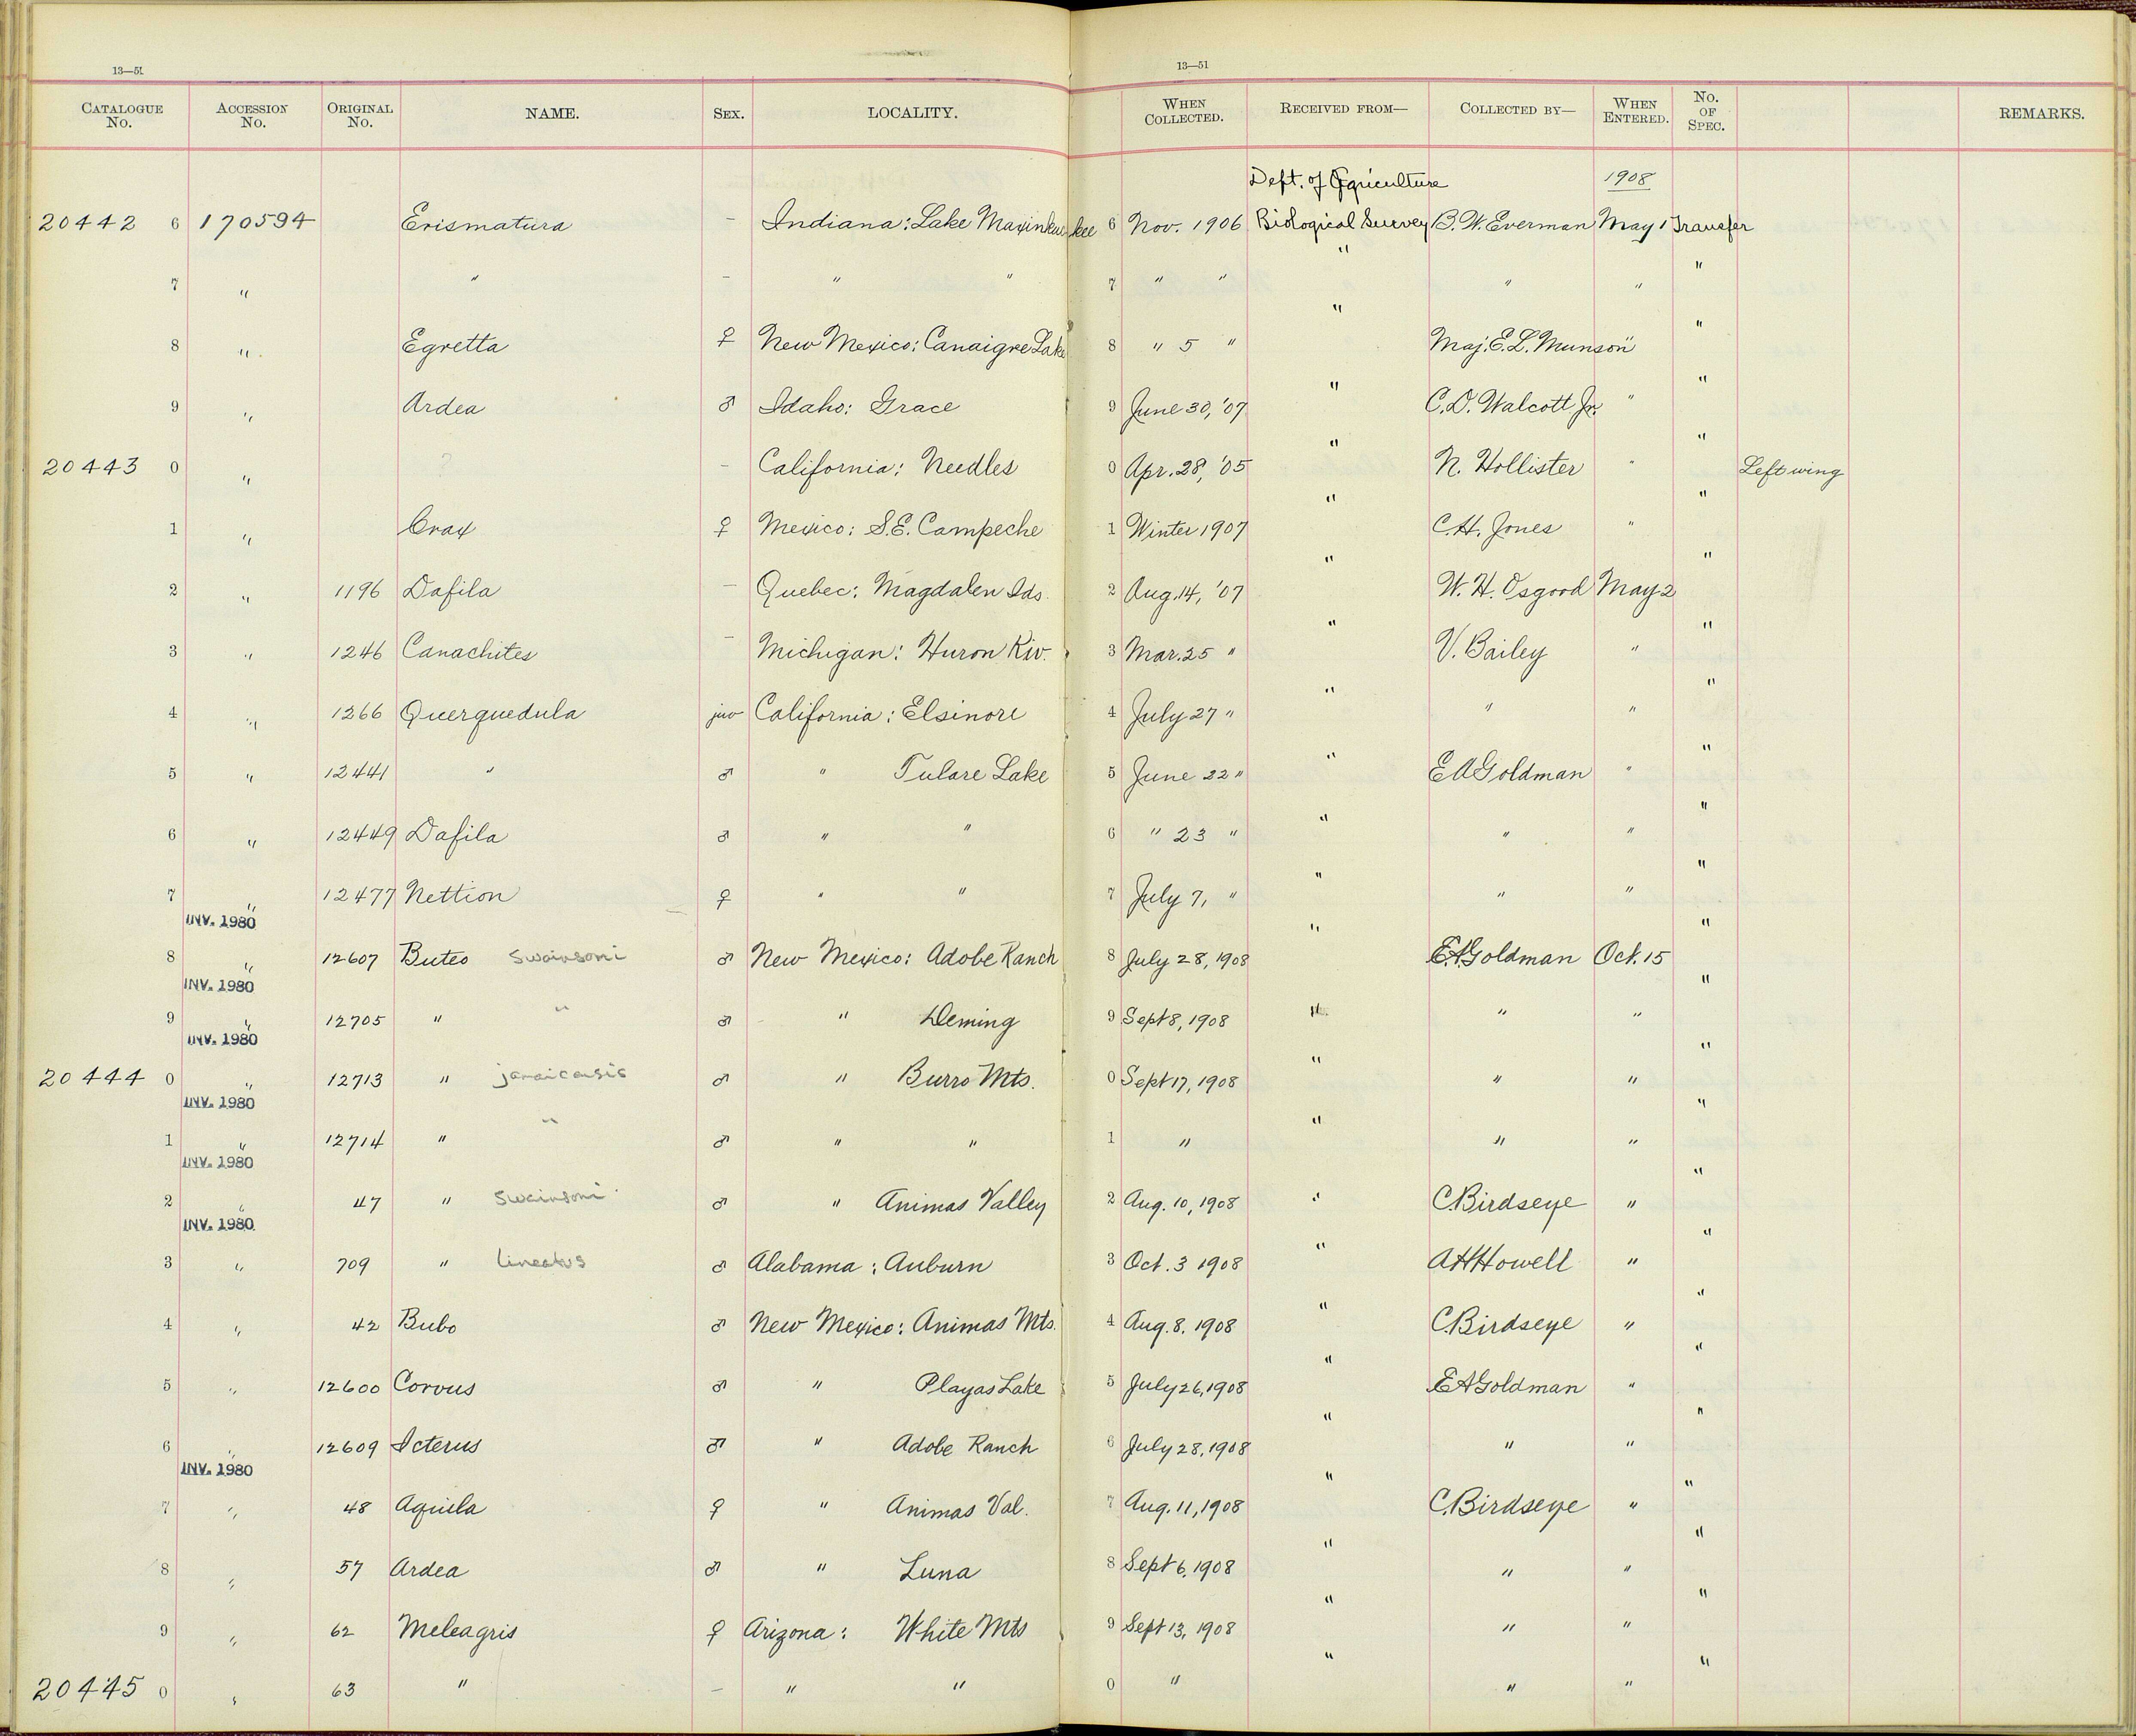 13—51 13—51
CATALOGUE No. ACCESSION No. ORIGINAL No. NAME. SEX. LOCALITY. WHEN COLLECTED. RECEIVED FROM— COLLECTED BY— WHEN ENTERED. No. OF SPEC. REMARKS.
Dept. of Agriculture 1908
20442 6 170594 Erismatura – Indiana: Lake Maxinkuckee 6 Nov. 1906 Biological Survey B. W. Everman May 1 Transfer
7 " " – " " 7 " " " " " "
8 " Egretta ♀ New Mexico: Canaigre Lake 8 " 5 " " Maj. E. L. Munson " "
9 " Ardea ♂ Idaho: Grace 9 June 30, '07 " C. D. Walcott Jr. " "
20443 0 " ? – California: Needles 0 Apr. 28, '05 " N. Hollister " " Left wing
1 " Crax ♀ Mexico: S.E. Campeche 1 Winter 1907 " C. H. Jones " "
2 " 1196 Dafila – Quebec: Magdalen Ids. 2 Aug. 14, '07 " W. H. Osgood May 2 "
3 " 1246 Canachites – Michigan: Huron Riv. 3 Mar. 25 " " V. Bailey " "
4 " 1266 Querquedula juv California: Elsinore 4 July 27 " " " " "
5 " 12441 " ♂ " Tulare Lake 5 June 22 " " E A Goldman " "
6 " 12449 Dafila ♂ " " 6 " 23 " " " " "
7 " 12477 Nettion ♀ " " 7 July 7, " " " " "
INV. 1980
8 " 12607 Buteo swainsoni ♂ New Mexico: Adobe Ranch 8 July 28, 1908 " E A Goldman Oct. 15 "
INV. 1980
9 " 12705 " " ♂ " Deming 9 Sept 8, 1908 " " " "
INV. 1980
20444 0 " 12713 " jamaicensis ♂ " Burro Mts. 0 Sept 17, 1908 " " " "
INV. 1980
1 " 12714 " " ♂ " " 1 " " " " "
INV. 1980
2 " 47 " swainsoni ♂ " Animas Valley 2 Aug. 10, 1908 " C. Birdseye " "
INV. 1980
3 " 709 " lineatus ♂ Alabama: Auburn 3 Oct. 3 1908 " A H Howell " "
4 " 42 Bubo ♂ New Mexico: Animas Mts. 4 Aug. 8, 1908 " C. Birdseye " "
5 " 12600 Corvus ♂ " Playas Lake 5 July 26, 1908 " E A Goldman " "
6 " 12609 Icterus ♂ " Adobe Ranch 6 July 28, 1908 " " " "
INV. 1980
7 " 48 Aquila ♀ " Animas Val. 7 Aug. 11, 1908 " C. Birdseye " "
8 " 57 Ardea ♂ " Luna 8 Sept 6, 1908 " " " "
9 " 62 Meleagris ♀ Arizona: White Mts 9 Sept 13, 1908 " " " "
20445 0 " 63 " – " " 0 " " " " "